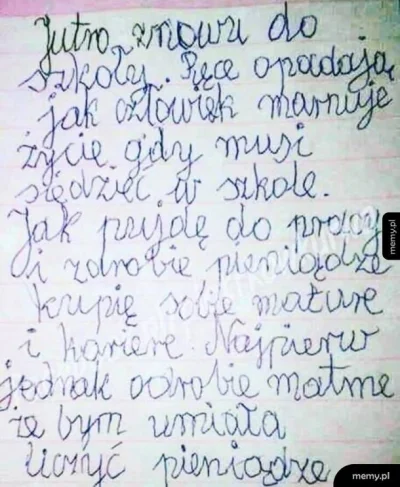 Jutro znowu do
szkoły. Ręce opadają
jak człowiek marnuje
życie gdy musi
siędzieć w szkole.
Jak pujdę do pracy
i zdrobie pieniądze
kupię sobie mature
i kariere. Najpierw
jednak odrobie matme
że bym umiała
liczyć pieniądze
memy.pl
memy.pl